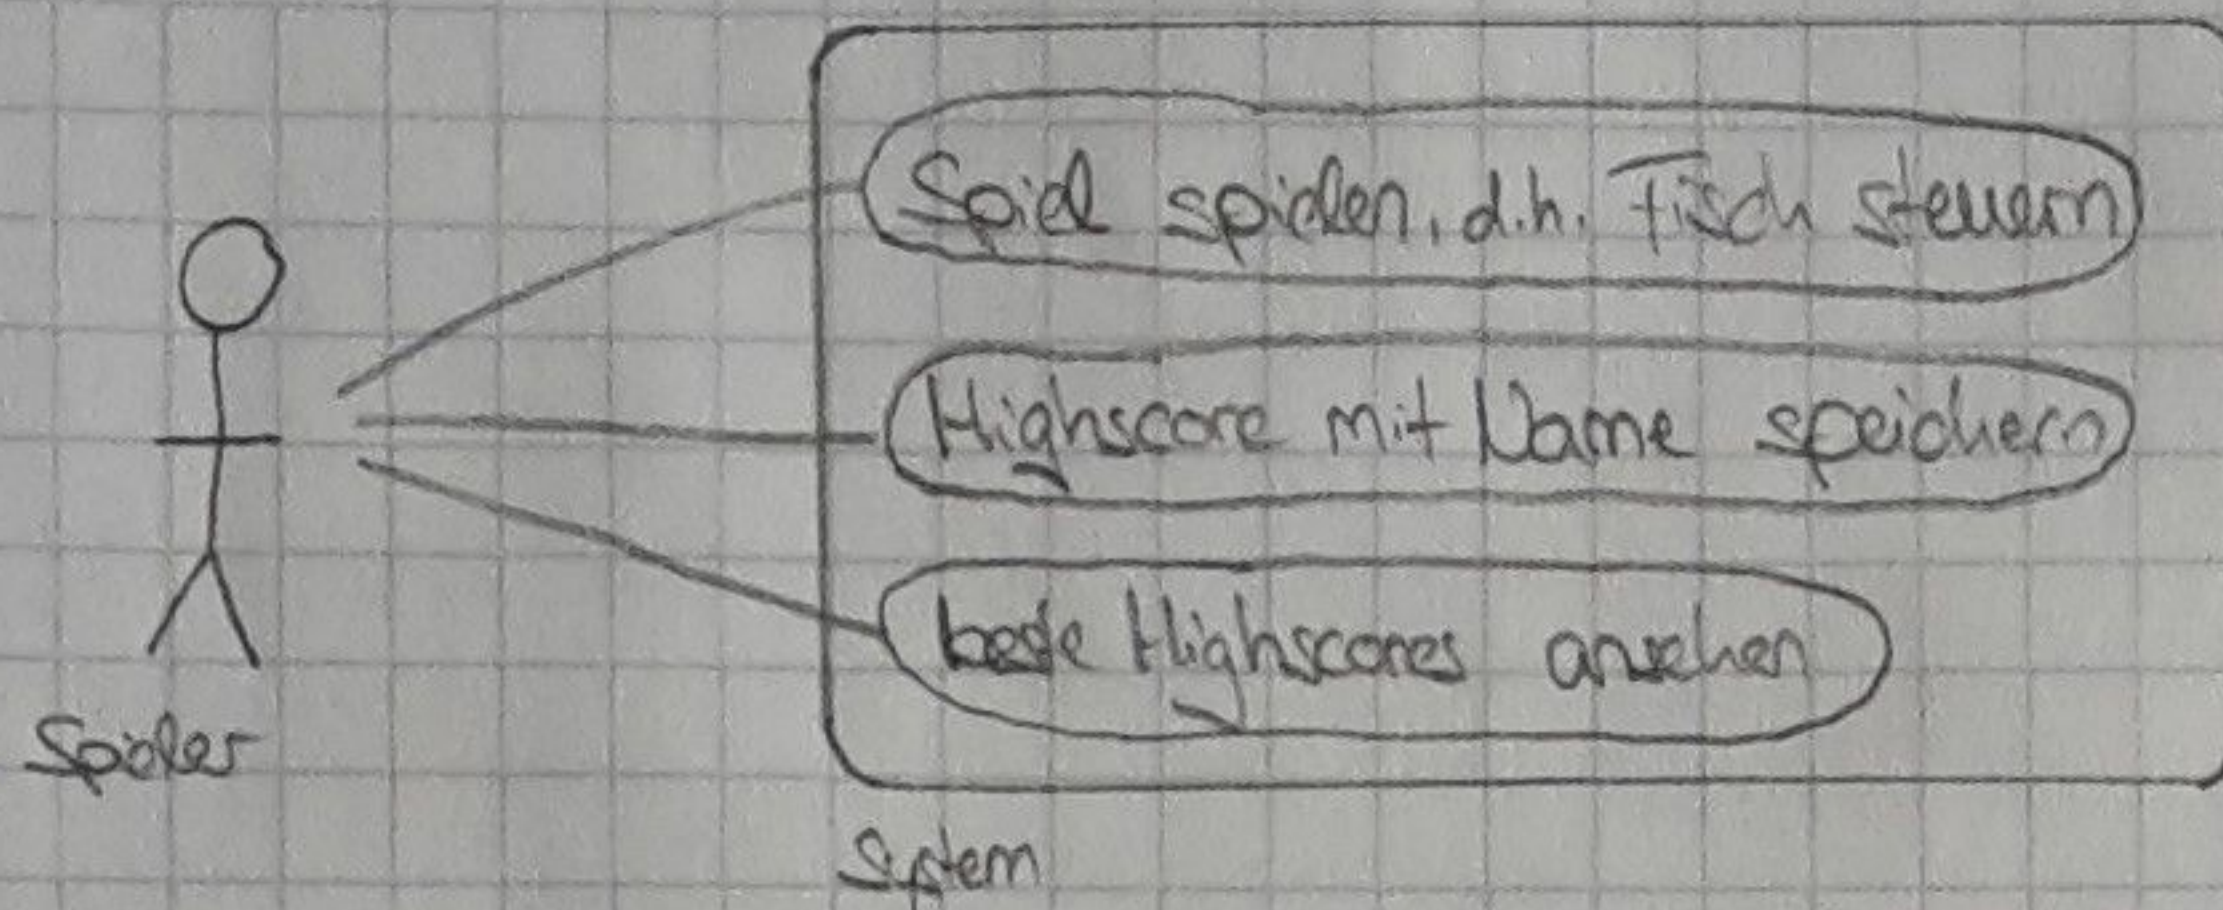 Spiel spielen, d.h. Fisch steuern
Highscore mit Name speichern
beste Highscores ansehen
Spieler
System